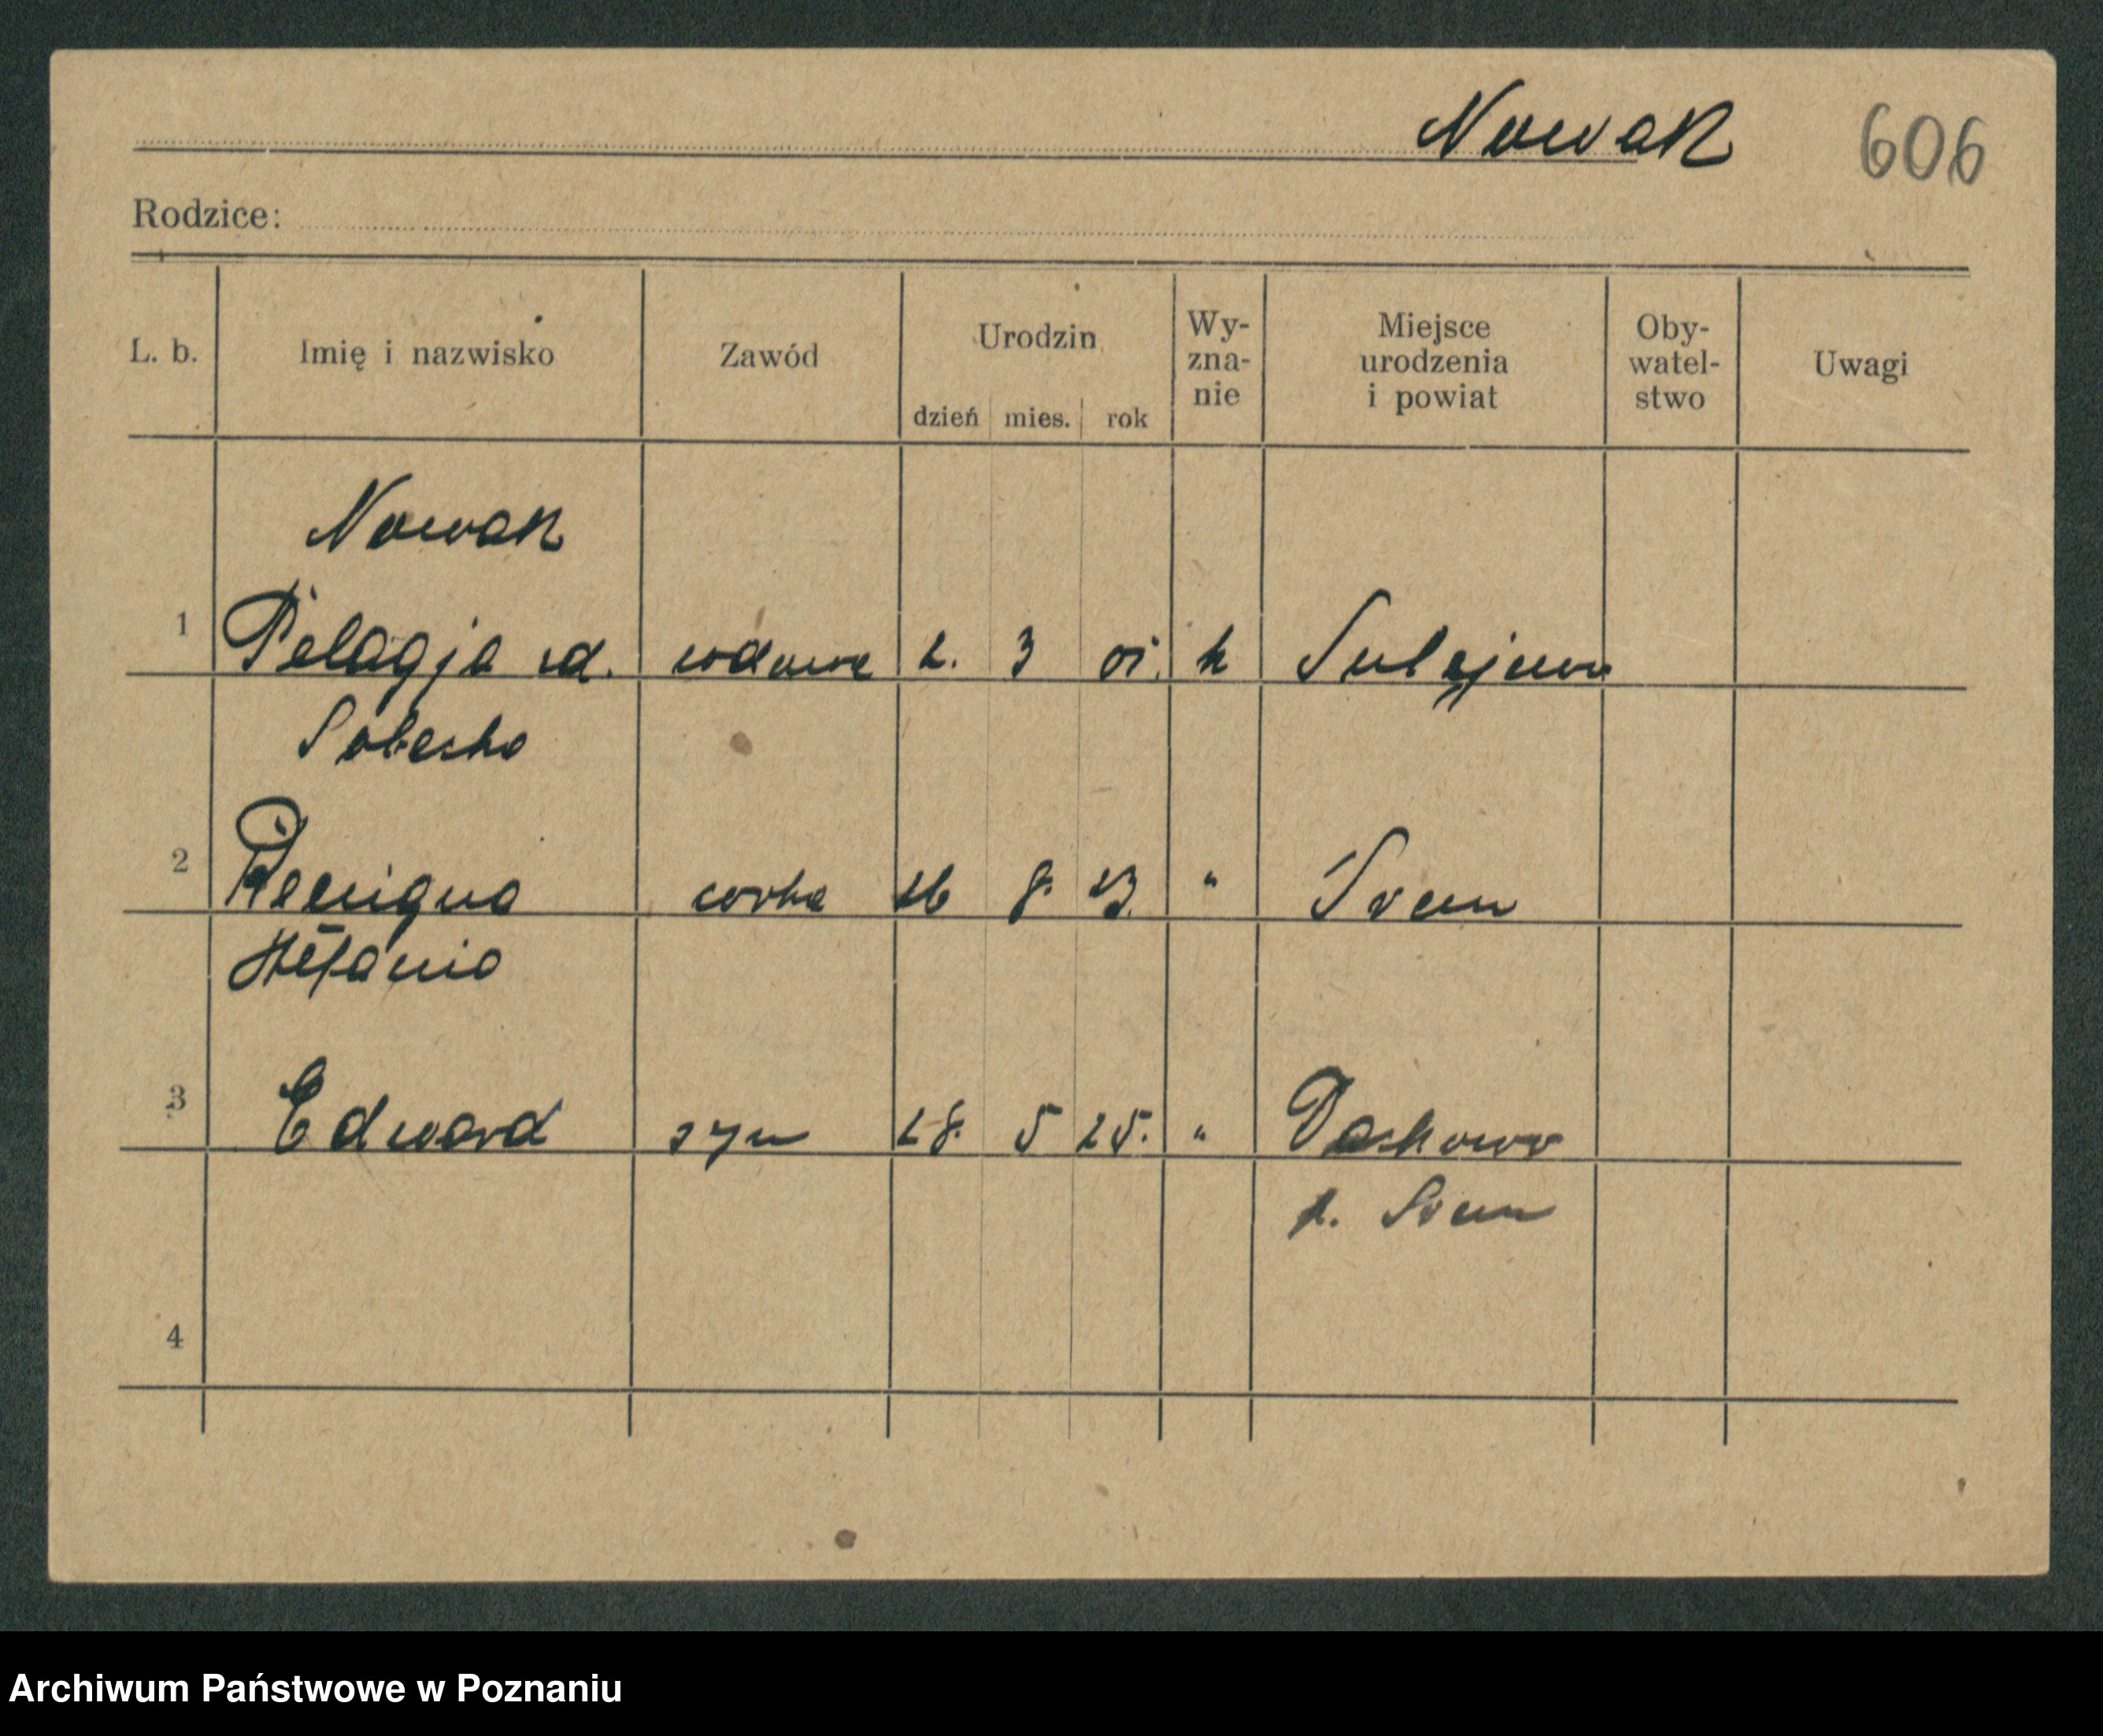 Nowak 606
Rodzice:
L. b. Imię i nazwisko Zawód Urodzin dzień mies. rok Wy-zna-nie Miejsce urodzenia i powiat Oby-watel-stwo Uwagi
Nowak
1 Pelagja zd. wdowa 2. 3 01. k Sulejewo
Sobecka
2 córka 26 8. 23. " Śrem
Stefania
3 Edward syn 28. 5 25. " Daszewo
p. Śrem
4
Archiwum Państwowe w Poznaniu